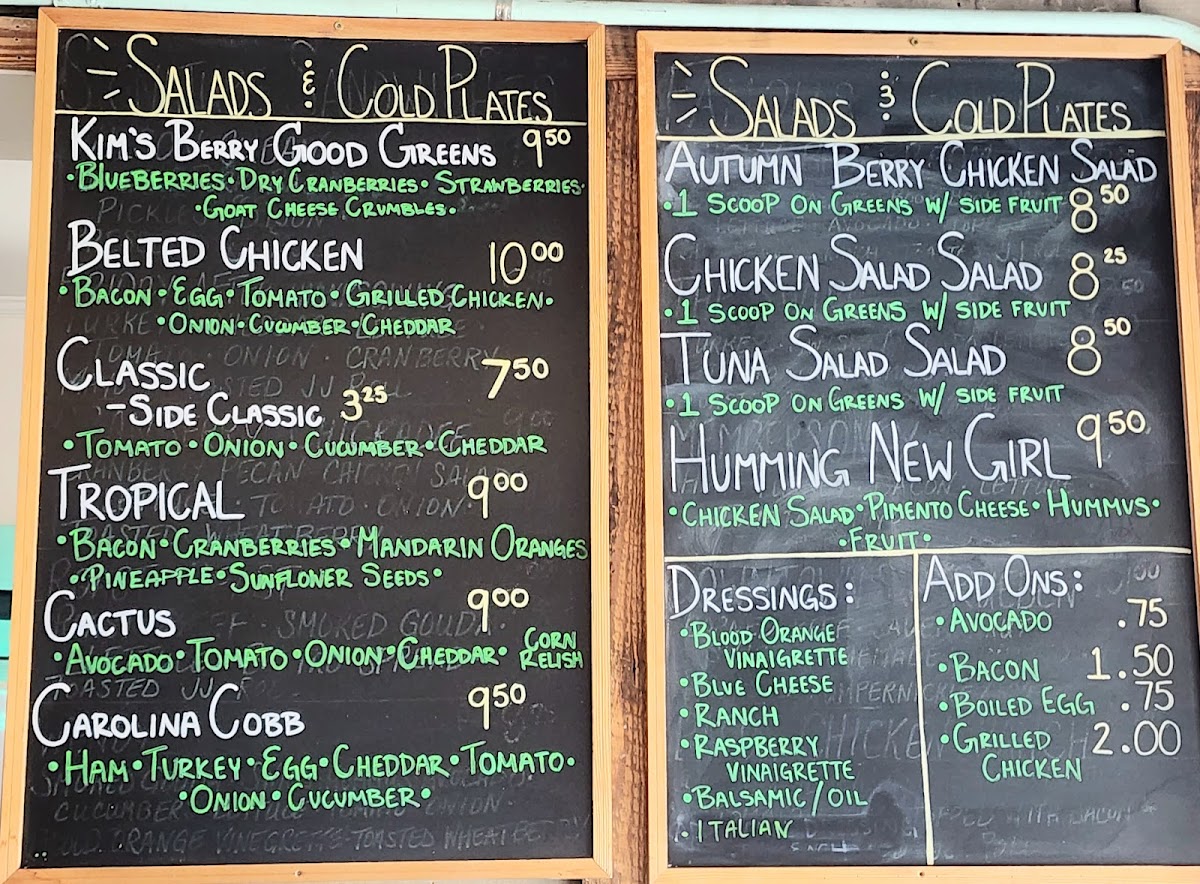 SALADS & COLD PLATES
KIM'S BERRY GOOD GREENS 9.50
•BLUEBERRIES•DRY CRANBERRIES•STRAWBERRIES•
•GOAT CHEESE CRUMBLES•
BELTED CHICKEN 10.00
•BACON•EGG•TOMATO•GRILLED CHICKEN•
•ONION•CUCUMBER•CHEDDAR
CLASSIC 7.50
-SIDE CLASSIC 3.25
•TOMATO•ONION•CUCUMBER•CHEDDAR
TROPICAL 9.00
•BACON•CRANBERRIES•MANDARIN ORANGES
•PINEAPPLE•SUNFLOWER SEEDS•
CACTUS 9.00
•AVOCADO•TOMATO•ONION•CHEDDAR•CORN RELISH
CAROLINA COBB 9.50
•HAM•TURKEY•EGG•CHEDDAR•TOMATO•
•ONION•CUCUMBER•
SALADS & COLD PLATES
AUTUMN BERRY CHICKEN SALAD
•1 SCOOP ON GREENS W/ SIDE FRUIT 8.50
CHICKEN SALAD SALAD 8.25
•1 SCOOP ON GREENS W/ SIDE FRUIT
TUNA SALAD SALAD 8.50
•1 SCOOP ON GREENS W/ SIDE FRUIT
HUMMING NEW GIRL 9.50
•CHICKEN SALAD•PIMENTO CHEESE•HUMMUS•
•FRUIT•
DRESSINGS:
•BLOOD ORANGE
VINAIGRETTE
•BLUE CHEESE
•RANCH
•RASPBERRY
VINAIGRETTE
•BALSAMIC/OIL
•ITALIAN
ADD ONS:
•AVOCADO .75
•BACON 1.50
•BOILED EGG .75
•GRILLED 2.00
CHICKEN